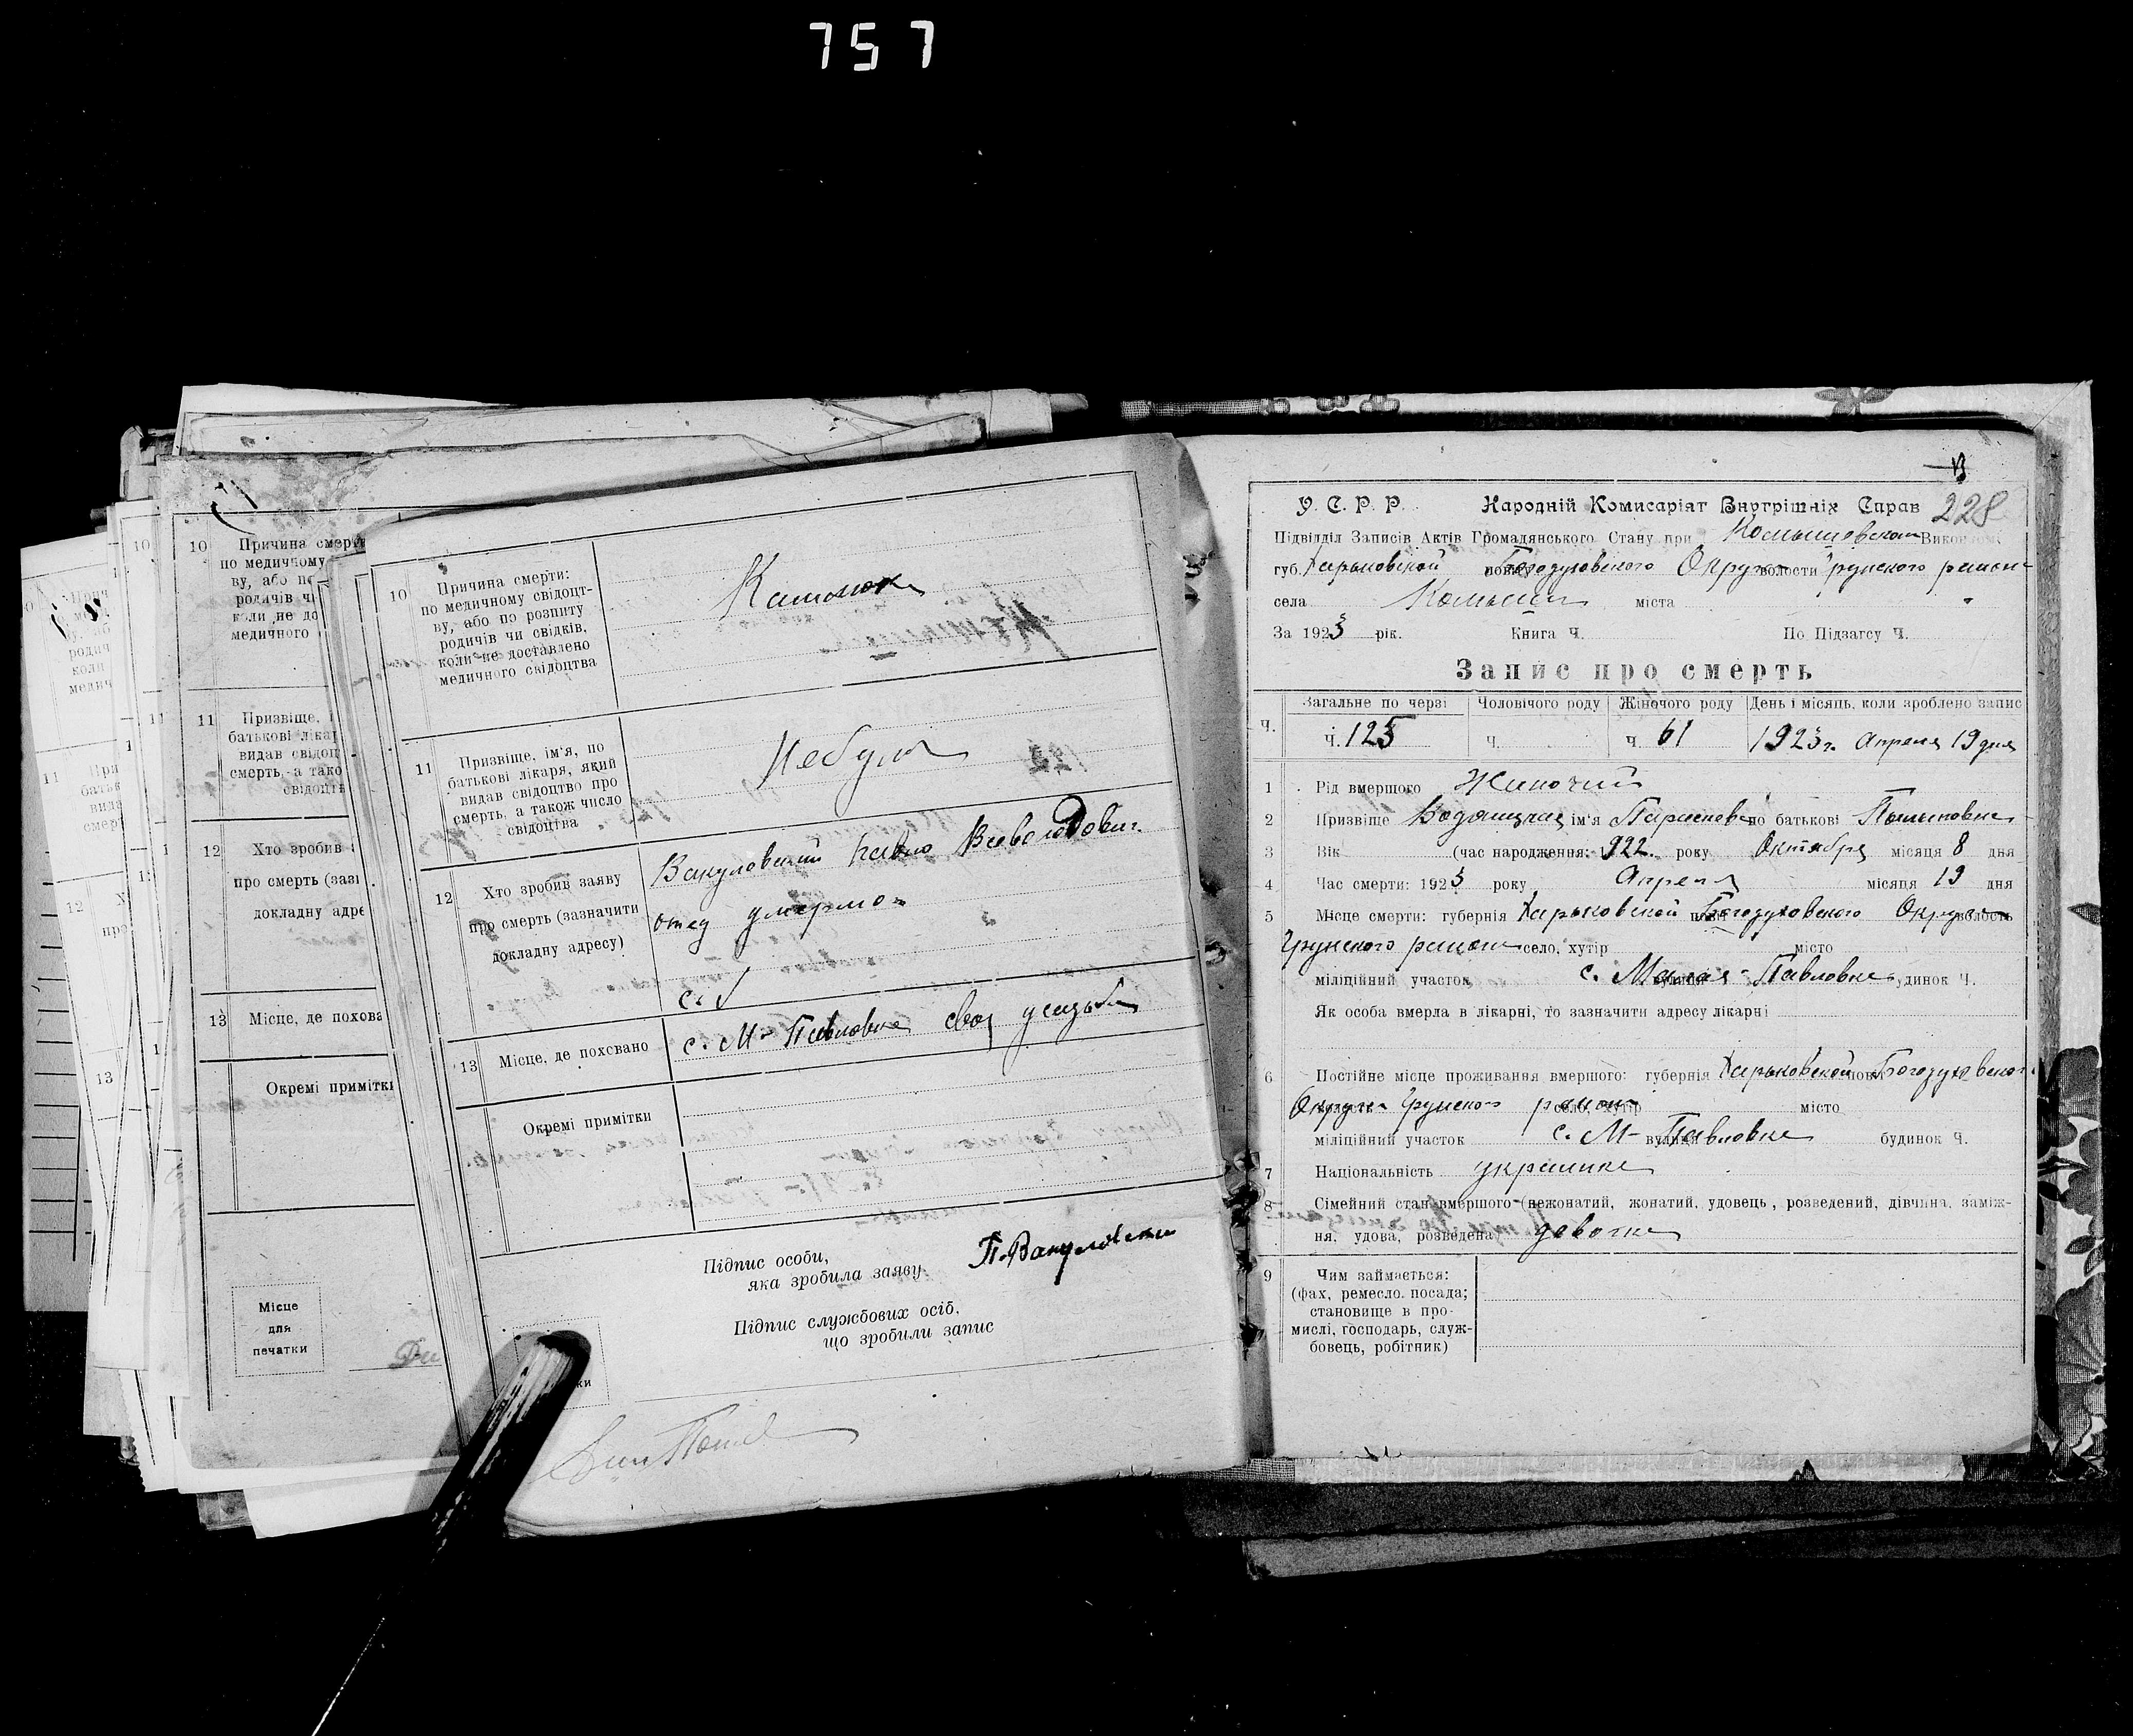 757
10 Причина смерт
по медичному
ву, або п
родичів ч
коли не до
медичного
11 Призвіще,
батькові ліка
видав свідоц
смерть, а тако
свідоцтв
12 Хто зробив
про смерть (заз
докладну адре
13 Місце, де похова
Окремі примітки
Місце
для
печатки
10 Причина смерти:
по медичному свідоцт-
ву, або по розпиту
родичів чи свідків,
коли не доставлено
медичного свідоцтва
11 Призвіще, ім'я, по
батькові лікаря, який
видав свідоцтво про
смерть, а також число
свідоцтва
Небуло
12 Хто зробив заяву
про смерть (зазначити
докладну адресу)
Вакуловский Павло Всеволодович
отец умершо
13 Місце, де поховано с. М-Павловка своя усадьба
Окремі примітки
Підпис особи,
яка зробила заяву П. Вакуловски
Підпис службових осіб,
що зробили запис
228
У. С. Р. Р. Народній Комисаріат Внутрішніх Справ
Підвідділ Записів Актів Громадянського Стану при Комышовском Викон
губ. Харьковской повіту Богодуховского Округа волости Грунского района
села Комыши міста
За 1923 рік. Книга Ч. По Підзагсу Ч.
Запис про смерть
Ч. Загальне по черзі Чоловічого роду Жіночого роду День і місяць, коли зроблено запис
Ч. 125 Ч. Ч. 61 1923 г. Апреля 19 дня
1 Рід вмершого Жиночий
2 Призвіще ім'я по батькові
3 Вік (час народження: 1922. року Октября місяця 8 дня
4 Час смерти: 1923 року Апреля місяця 19 дня
5 Місце смерти: губернія Харьковской повіт Богодуховского Округа волость
Грунского района село, хутір місто
міліційний участок с. Малая-Павловка вулиця будинок Ч.
Як особа вмерла в лікарні, то зазначити адресу лікарні
6 Постійне місце проживання вмершого: губернія Харьковской пов. Богодуховского
Округа Грунского района волость село, хутір місто
міліційний участок с. М-Павловка вулиця будинок Ч.
7 Національність украинка
8 Сімейний стан вмершого (нежонатий, жонатий, удовець, розведений, дівчина, заміж-
ня, удова, розведена) девочка
9 Чим займається:
(фах, ремесло, посада;
становище в про-
мислі, господарь, служ-
бовець, робітник)